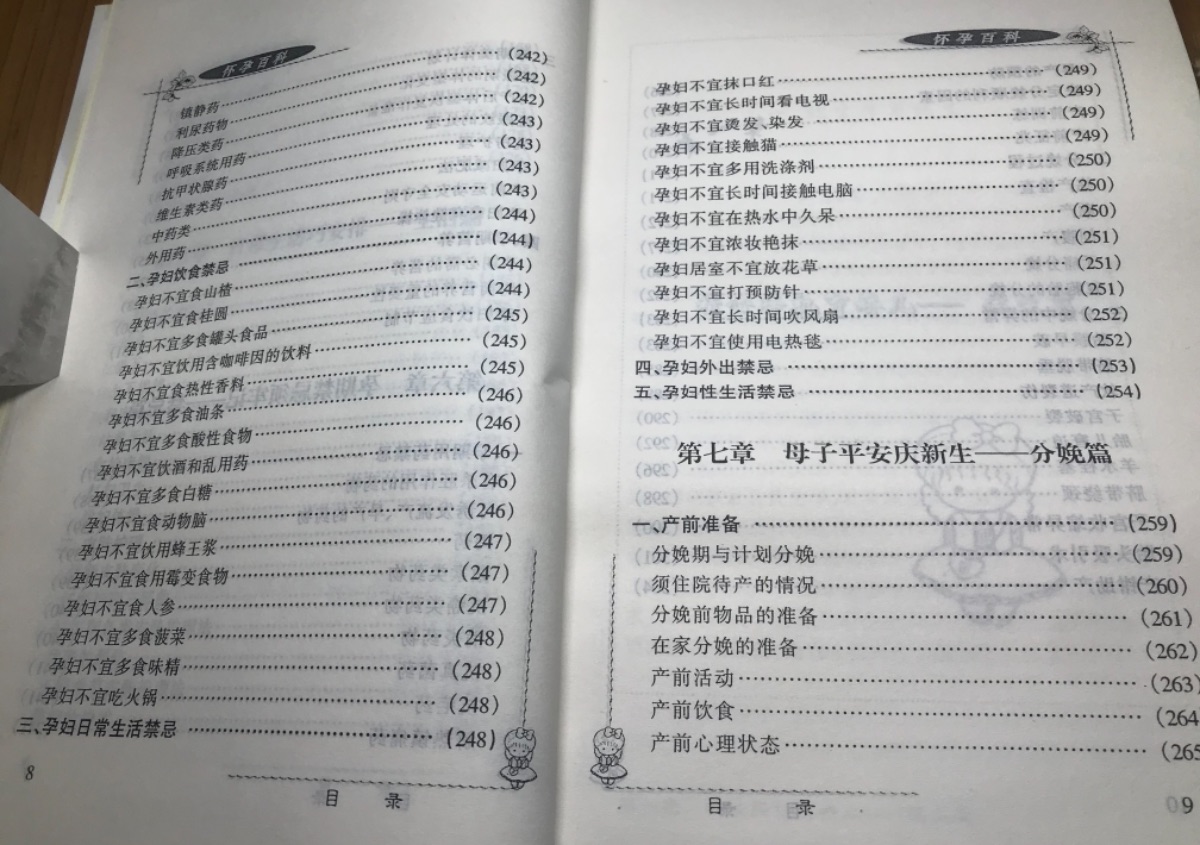 怀孕百科
镇静药……(242)
利尿药物……(242)
降压类药……(242)
呼吸系统用药……(243)
抗甲状腺药……(243)
维生素类药……(243)
中药类……(243)
外用药……(244)
二、孕妇饮食禁忌……(244)
孕妇不宜食山楂……(244)
孕妇不宜食桂圆……(244)
孕妇不宜多食罐头食品……(245)
孕妇不宜饮用含咖啡因的饮料……(245)
孕妇不宜食热性香料……(245)
孕妇不宜多食油条……(246)
孕妇不宜多食酸性食物……(246)
孕妇不宜饮酒和乱用药……(246)
孕妇不宜多食白糖……(246)
孕妇不宜食动物脑……(246)
孕妇不宜饮用蜂王浆……(247)
孕妇不宜食用霉变食物……(247)
孕妇不宜食人参……(247)
孕妇不宜多食菠菜……(248)
孕妇不宜多食味精……(248)
孕妇不宜吃火锅……(248)
三、孕妇日常生活禁忌……(248)
8
目 录
怀孕百科
孕妇不宜抹口红……(249)
孕妇不宜长时间看电视……(249)
孕妇不宜烫发、染发……(249)
孕妇不宜接触猫……(249)
孕妇不宜多用洗涤剂……(250)
孕妇不宜长时间接触电脑……(250)
孕妇不宜在热水中久呆……(250)
孕妇不宜浓妆艳抹……(251)
孕妇居室不宜放花草……(251)
孕妇不宜打预防针……(251)
孕妇不宜长时间吹风扇……(252)
孕妇不宜使用电热毯……(252)
四、孕妇外出禁忌……(253)
五、孕妇性生活禁忌……(254)
第七章 母子平安庆新生——分娩篇
一、产前准备……(259)
分娩期与计划分娩……(259)
须住院待产的情况……(260)
分娩前物品的准备……(261)
在家分娩的准备……(262)
产前活动……(263)
产前饮食……(264
产前心理状态……(265
目 录
09